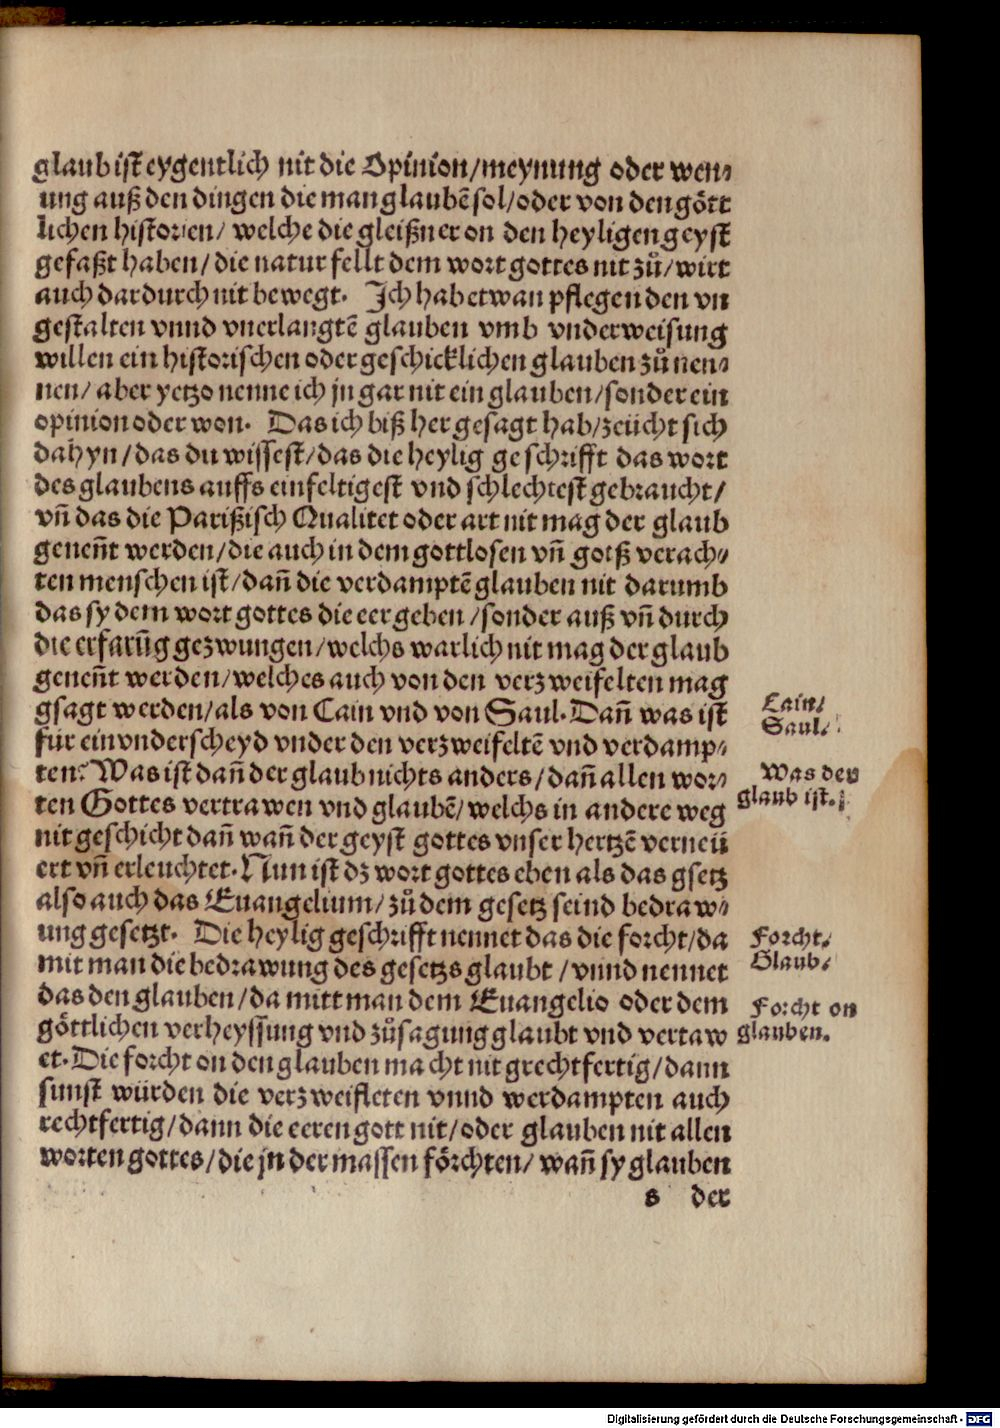 glaub ist eygentlich nit die Opinion/meynung oder wen⸗
ung auß den dingen die man glaubẽ sol/oder von den gött
lichen historien/ welche die gleißner on den heyligen geyst
gefaßt haben/ die natur fellt dem wort gottes nit zů/wirt
auch dardurch nit bewegt. Ich hab etwan pflegen den vn
gestalten vnnd vnerlangtẽ glauben vmb vnderweisung
willen ein historischen oder geschicklichen glauben zů nen⸗
nen/ aber yetzo nenne ich jn gar nit ein glauben/sonder ein
opinion oder won. Das ich biß her gesagt hab/zeücht sich
dahyn/das du wissest/das die heylig geschrifft das wort
des glaubens auffs einfeltigest vnd schlechtest gebraucht/
vñ das die Parißisch Qualitet oder art nit mag der glaub
geneñt werden/die auch in dem gottlosen vñ gotß verach⸗
ten menschen ist/dañ die verdamptẽ glauben nit darumb
das sy dem wort gottes die eer geben/sonder auß vñ durch
die erfarũg gezwungen/welchs warlich nit mag der glaub
geneñt werden/welches auch von den verzweifelten mag
gsagt werden/als von Cain vnd von Saul. Dañ was ist
für ein vnderscheyd vnder den verzweifeltẽ vnd verdamp⸗
ten? Was ist dañ der glaub nichts anders/dañ allen wor⸗
ten Gottes vertrawen vnd glaubẽ/welchs in andere weg
nit geschicht dañ wañ der geyst gottes vnser hertzẽ verneü
ert vñ erleuchtet. Nun ist dz wort gottes eben als das gsetz
also auch das Euangelium/zů dem gesetz seind bedraw⸗
ung gesetzt. Die heylig geschrifft nennet das die forcht/da
mit man die bedrawung des gesetzs glaubt/vnnd nennet
das den glauben/da mitt man dem Euangelio oder dem
göttlichen verheyssung vnd zůsagung glaubt vnd vertaw
et. Die forcht on den glauben macht nit grechtfertig/dann
sunst würden die verzweifleten vnnd werdampten auch
rechtfertig/dann die eeren gott nit/oder glauben nit allen
worten gottes/die jn der massen förchten/ wañ sy glauben
s der
Cain/
Saul.
Was der
glaub ist.
Forcht/
Glaub.
Forcht on
glauben.
Digitalisierung gefördert durch die Deutsche Forschungsgemeinschaft - DFG